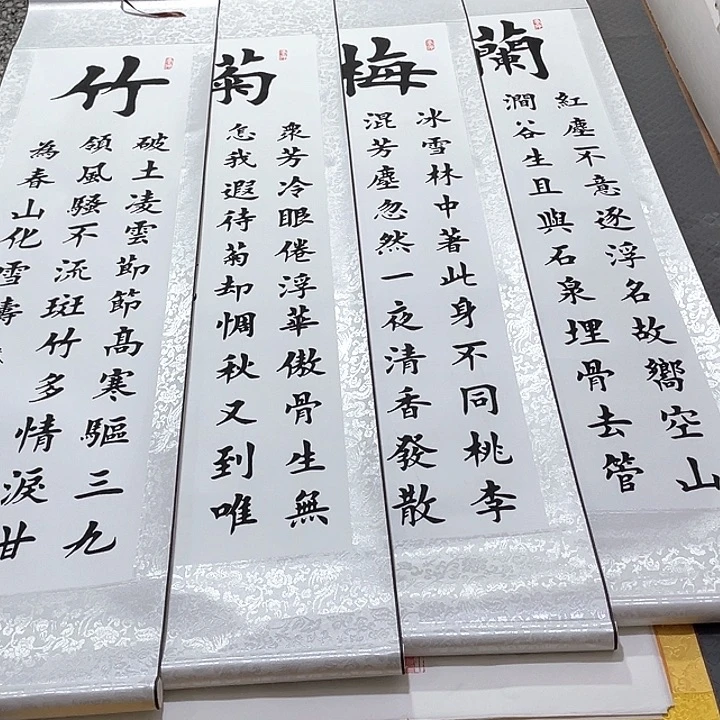 蘭
紅塵不意逐浮名故嚮空山
澗谷生且與石泉埋骨去管
梅
冰雪林中著此身不同桃李
混芳塵忽然一夜清香發散
菊
衆芳冷眼倦浮華傲骨生無
怎我遐待菊却惆秋又到唯
竹
破土凌雲節節髙寒驅三九
領風騷不流斑竹多情淚甘
為春山化雪濤